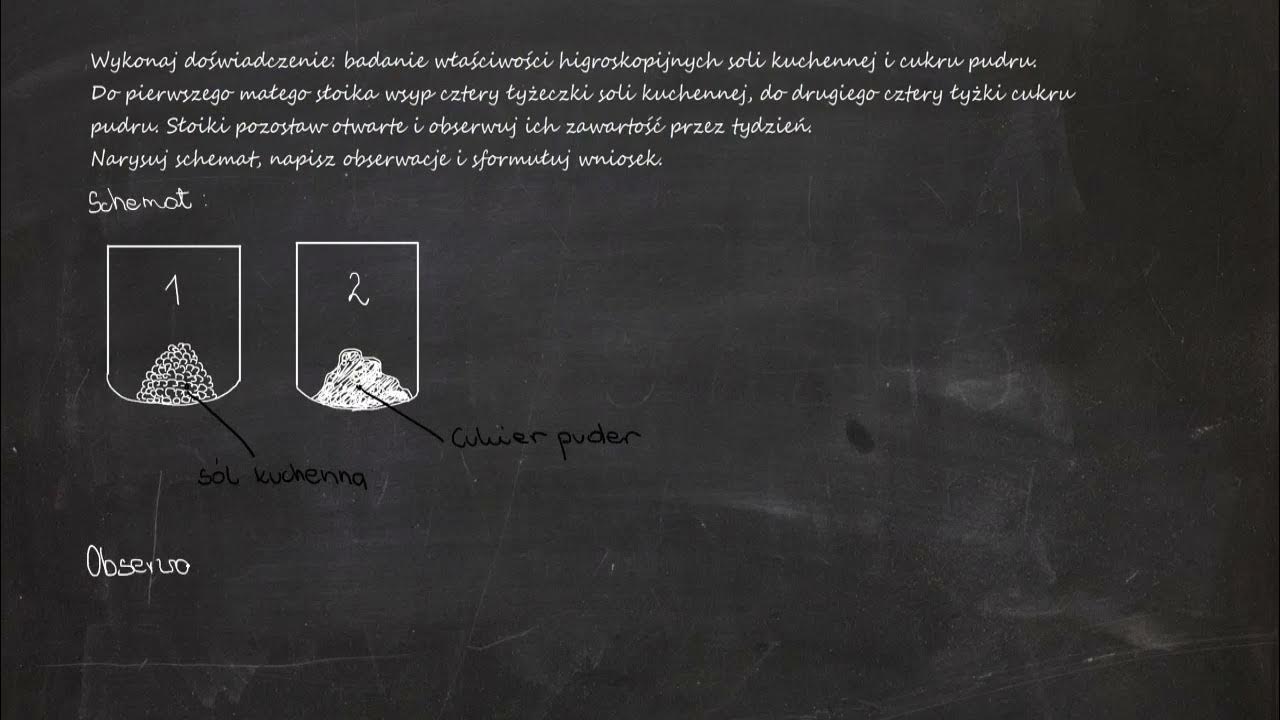 Wykonaj doświadczenie: badanie właściwości higroskopijnych soli kuchennej i cukru pudru.
Do pierwszego małego słoika wsyp cztery łyżeczki soli kuchennej, do drugiego cztery łyżki cukru
pudru. Słoiki pozostaw otwarte i obserwuj ich zawartość przez tydzień.
Narysuj schemat, napisz obserwacje i sformułuj wniosek.
Schemat:
1 2
cukier puder
sól kuchenna
Obserwa